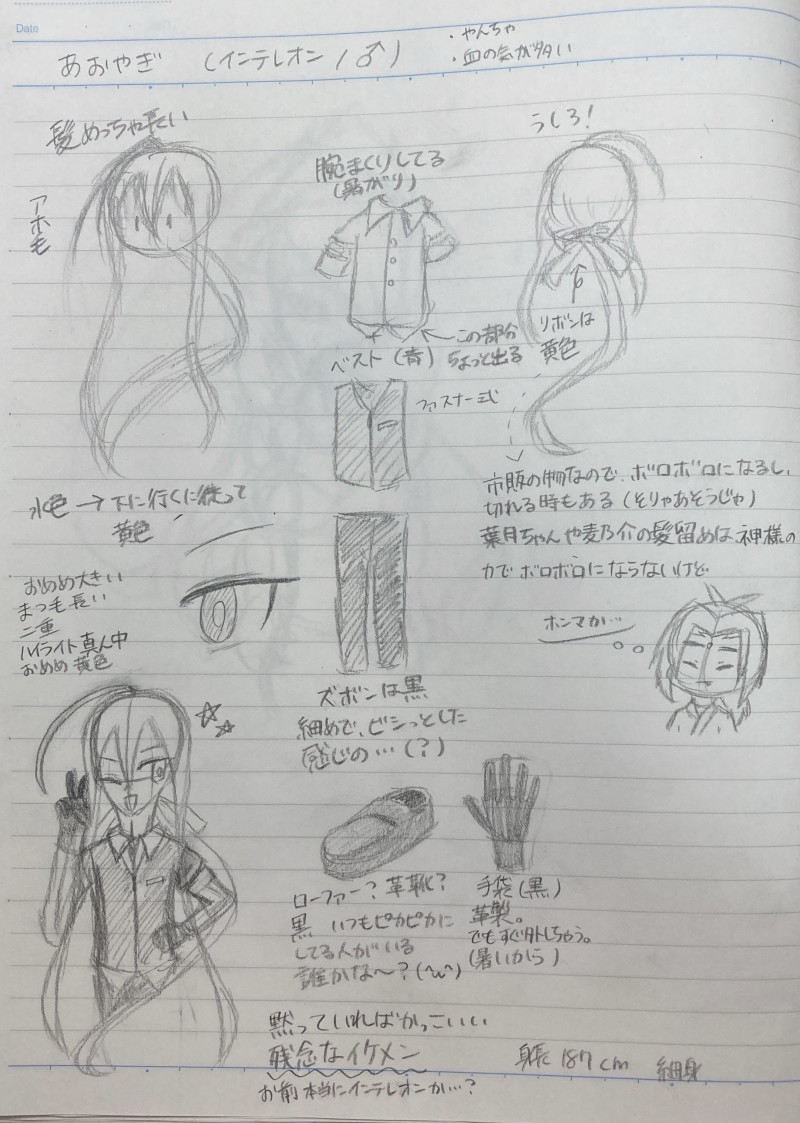 Date
あおやぎ (インテレオン / ♂)
・やんちゃ
・血の気が多い
髪めっちゃ長い
アホ毛
腕まくりしてる
(暑がり)
うしろ!
この部分
ちょっと出る
リボンは
黄色
ベスト (青)
ファスナー式
水色 → 下に行くに従って
黄色
市販の物なので、ボロボロになるし、
切れる時もある (そりゃあそうじゃ)
葉月ちゃんや麦乃介の髪留めは、神様の
力でボロボロにならないけど
ホンマか…
おめめ大きい
まつ毛長い
二重
ハイライト真ん中
おめめ黄色
ズボンは黒
細めで、ビシっとした
感じの…(?)
ローファー? 革靴?
黒 いつもピカピカに
してる人がいる
誰かな〜? (^ω^)
手袋 (黒)
革製。
でもすぐ外しちゃう。
(暑いから)
黙っていればかっこいい
残念なイケメン
お前本当にインテレオンか…?
身長 187cm 細身